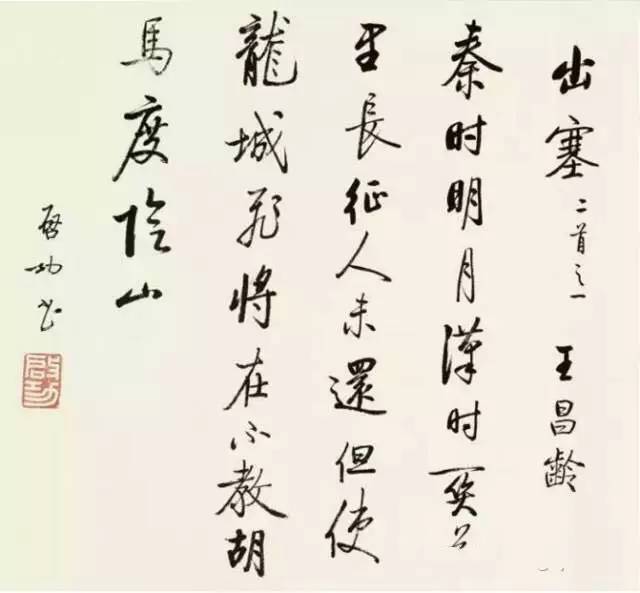 出塞 二首之一 王昌齡
秦时明月漢时關万
里長征人未還但使
龍城飛將在不教胡
馬度陰山
啓功书
啟功